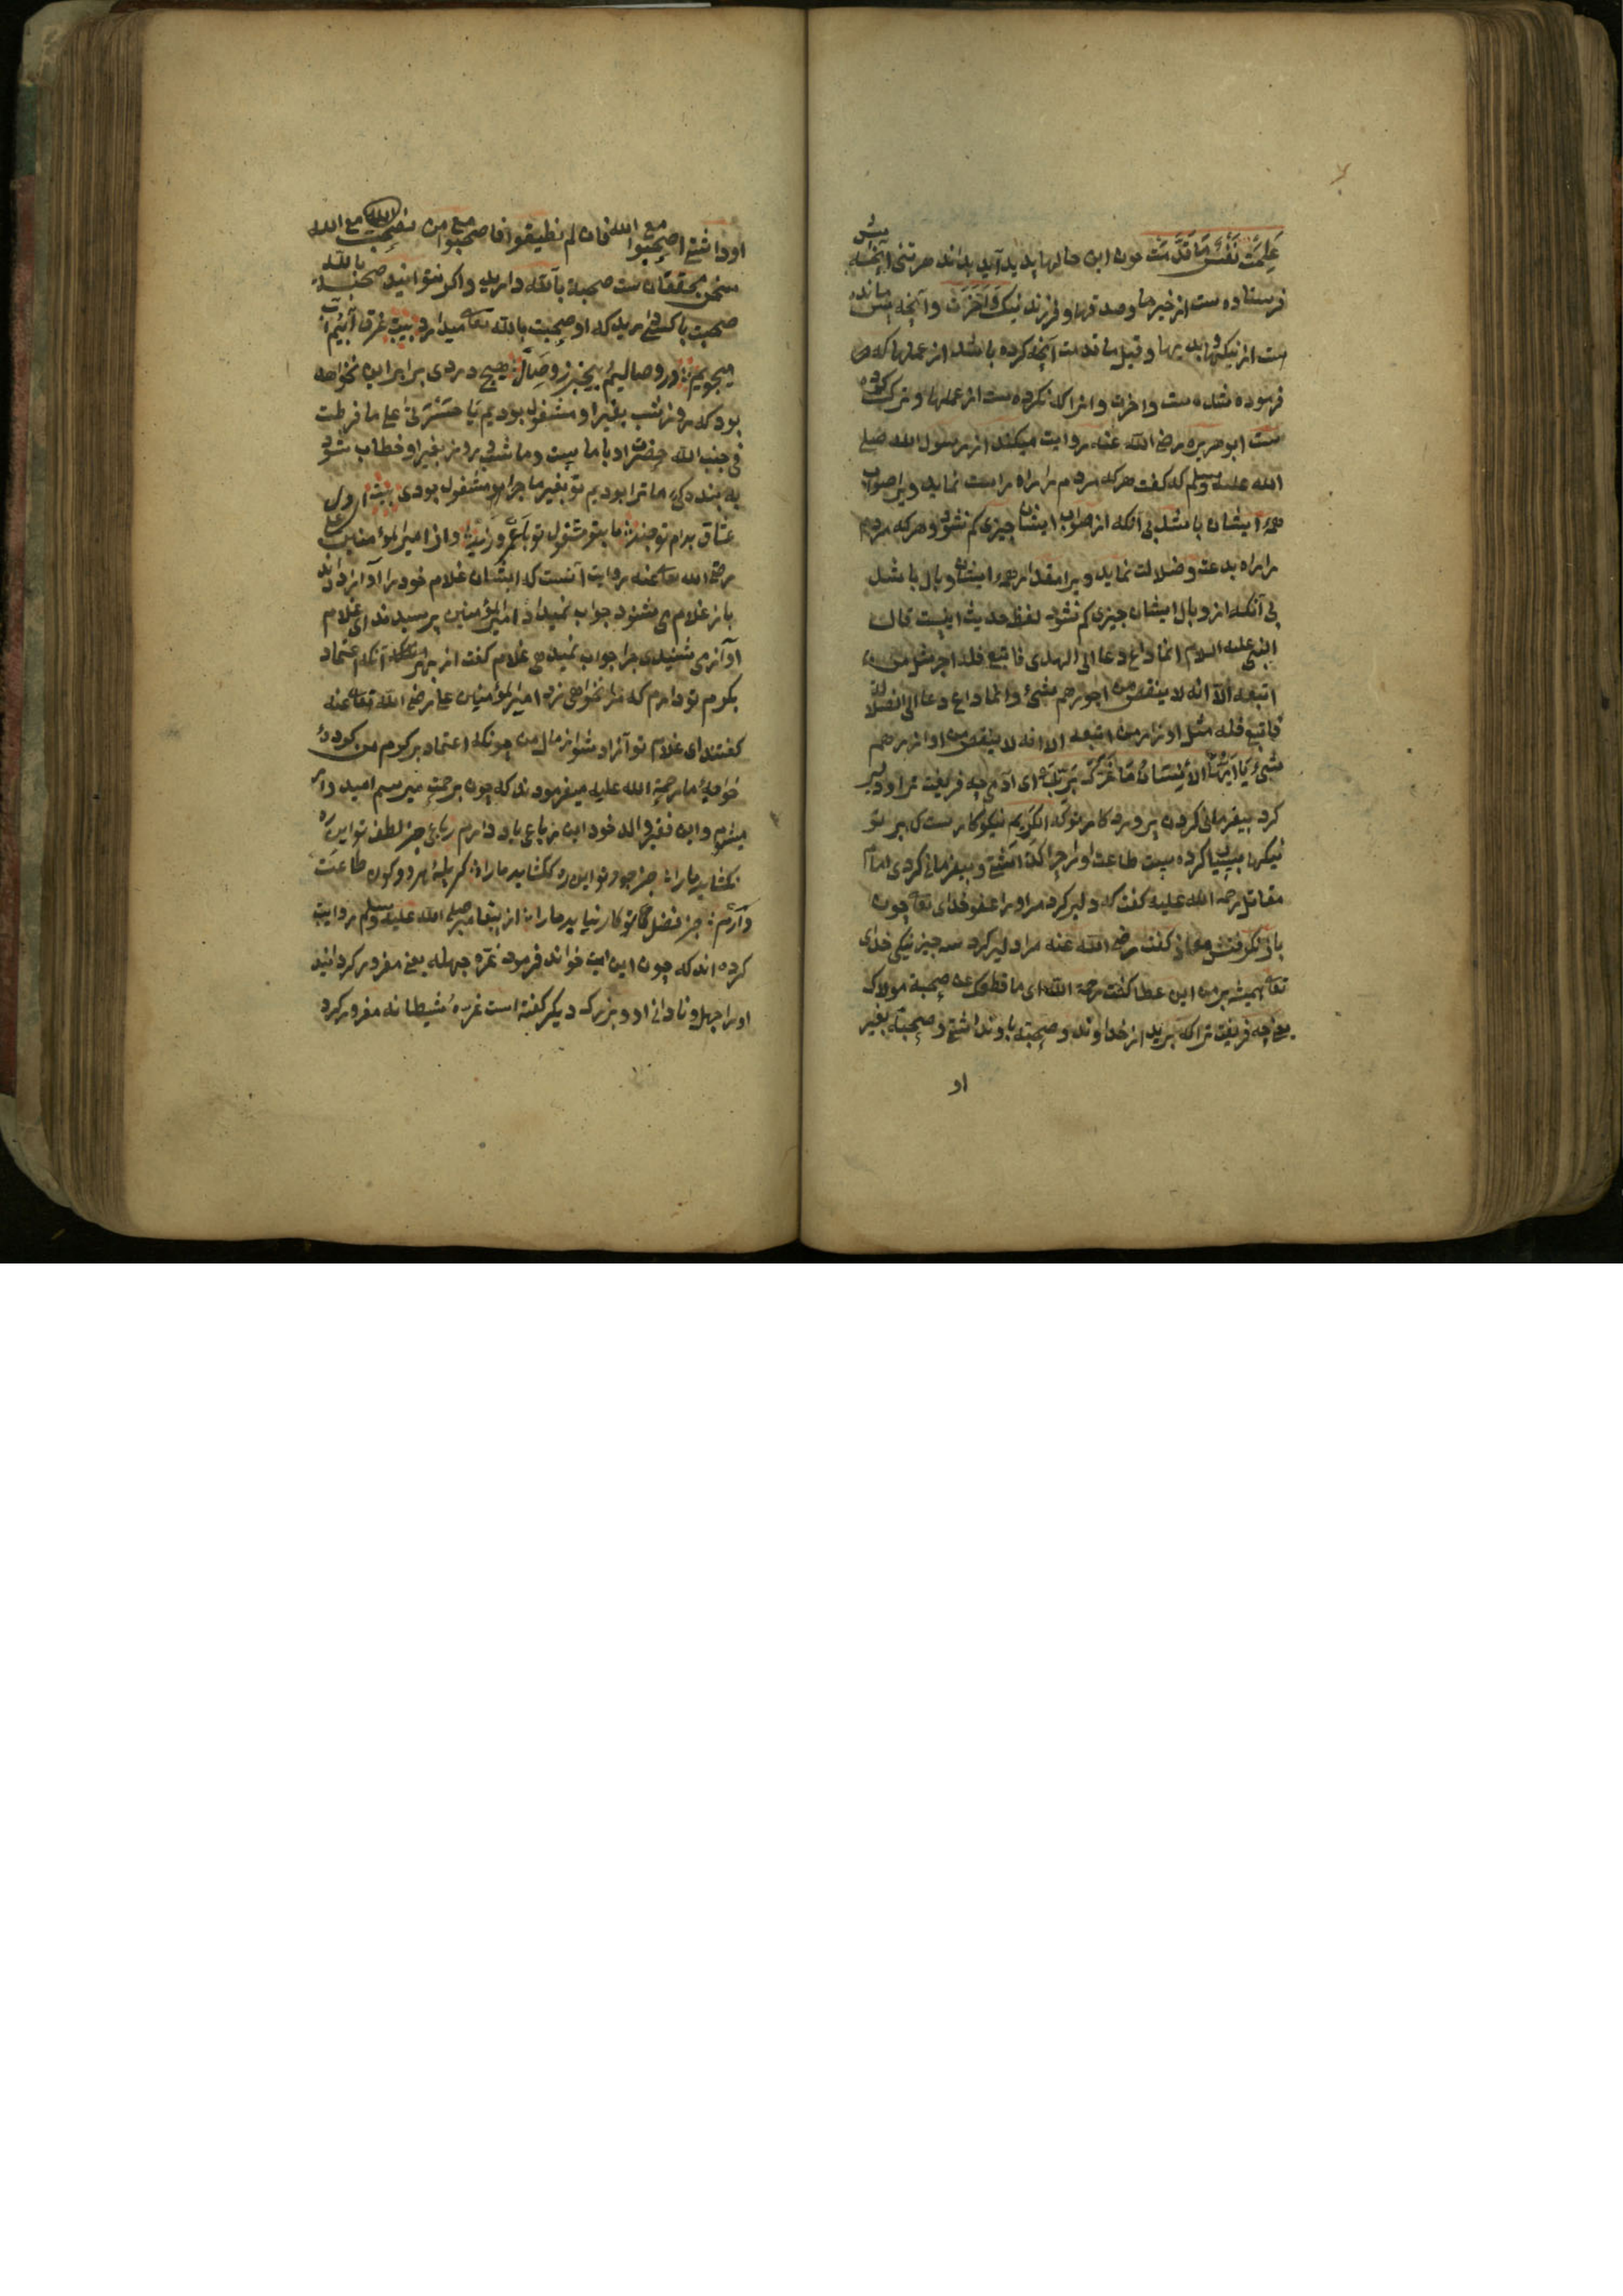 عَلِمَتْ نَفْسٌ مَا قَدَّمَتْ چون این حالها پدید آید بداند هر تنی آنچه پیش
فرستاده ست از خیرها و صدقها و فرزند نیک وَاَخَّرَتْ و آنچه پس مانده
ست از نیکیها و بدیها و قیل ما قدمت آنچه کرده باشد از عملها که
فرموده شده ست و اخرت و انرا که نکرده ست از عملها و ترک کرده
ست ابوهریره رضی الله عنه روایت میکند از رسول الله صلی
الله علیه وسلم که گفت هرکه مردم را راه راست نماید ویرا صواب
همه ایشان باشد بی آنکه از صواب ایشان چیزی کم نشود و هرکه مردم
را براه بدعت و ضلالت نماید ویرا مقدار همه ایشان وبال باشد
بی آنکه از وبال ایشان چیزی کم نشود لفظ حدیث اینست قال
النبی علیه السلام ایما داع دعا الی الهدی فاتبع فله اجر مثل من
اتبعه الا انه لا ینقص من اجورهم شیئ وایما داع دعا الی الضلالة
فاتبع فله مثل اوزار من اتبعه الا انه لا ینقص من اوزارهم
شیئ یَا اَیُّهَا الْاِنْسَانُ مَا غَرَّكَ بِرَبِّكَ ای آدمی چه فریفت ترا و دلیر
کرد بیفرمانی کردن پروردکار تو که الکریم نیکوکارست که بر تو
نیکی بسیار کرده ست طاعت او را چرا کذاشتی و بیفرمانی کردی امام
مقاتل رحمه الله علیه گفت که دلیر کرد مر او را عفو خدای تعا چون
باول گرفتش معاذ گفت رضی الله عنه مرا دلیر کرد سه چیز نیکی خدای
تعا همیشه بر من ابن عطا گفت رحمة الله ای ما قطعک عن صحبة مولاک
یعنی چه فریفت ترا که بریدی از خداوند و صحبت باو نداشتی و صحبت بغیر
او
او داشتی اصحبوا مع الله فان لم تطیقوا فاصحبوا مع من یصحب مع الله
سخن محققان ست صحبت بالله دارید و اکر نتوانید صحبت بالله
صحبت با کسی دارید که او صحبت بالله تعا میدارد بیت غرق آبیم آب
میجوییم در وصالیم بیخبر ز وصال هیچ دردی برابر این نخواهد
بود که روز شب بغیر او مشغول بودیم یَا حَسْرَتَیٰ علی ما فرطت
فی جنب الله حضرت او با ما بیت و ما شب روز بغیر او خطاب شود
به بنده که ما ترا بودیم تو بغیر ما چرا مشغول بودی بیت اول
عشاق بدام تو چند ما بتو مشغول تو با عمرو زید و از امیر المؤمنین علی
رضی الله تعا عنه روایت آنست که ایشان غلام خود را آواز دادند
بار غلام می شنود جواب نمیداد امیر المؤمنین پرسیدند ای غلام
آواز می شنیدی چرا جواب نمیدهی غلام گفت از بهر آنکه اعتماد
بکرم تو دارم که مرا نخواهی زد امیر المؤمنین علی رضی الله تعا عنه
گفتند ای غلام تو آزاد شو از مال من چونکه اعتماد بر کرم من کردی
خواجهٔ ما رحمة الله علیه میفرمودند که چون برحمت میرسم امید وار
میشوم و این فقیر از والد خود این رباعی یاد دارم رباعی جز لطف تو این ره
نکشاید ما را جز جود تو این ره نکشاید ما را کر پلهٔ هر دو کون طاعت
دارم جز فضل تو کار نیاید ما را از پیغامبر صلی الله علیه وسلم روایت
کرده اند که چون این آیت خواند فرمود غره جهله یعنی مغرور کردانید
او را جهل و نادانی او و بزرک دیکر گفته است غره شیطانه مغرور کرد